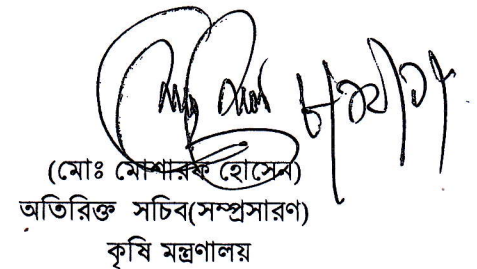 (মোঃ মোশারফ হোসেন)
অতিরিক্ত সচিব(সম্প্রসারণ)
কৃষি মন্ত্রণালয়